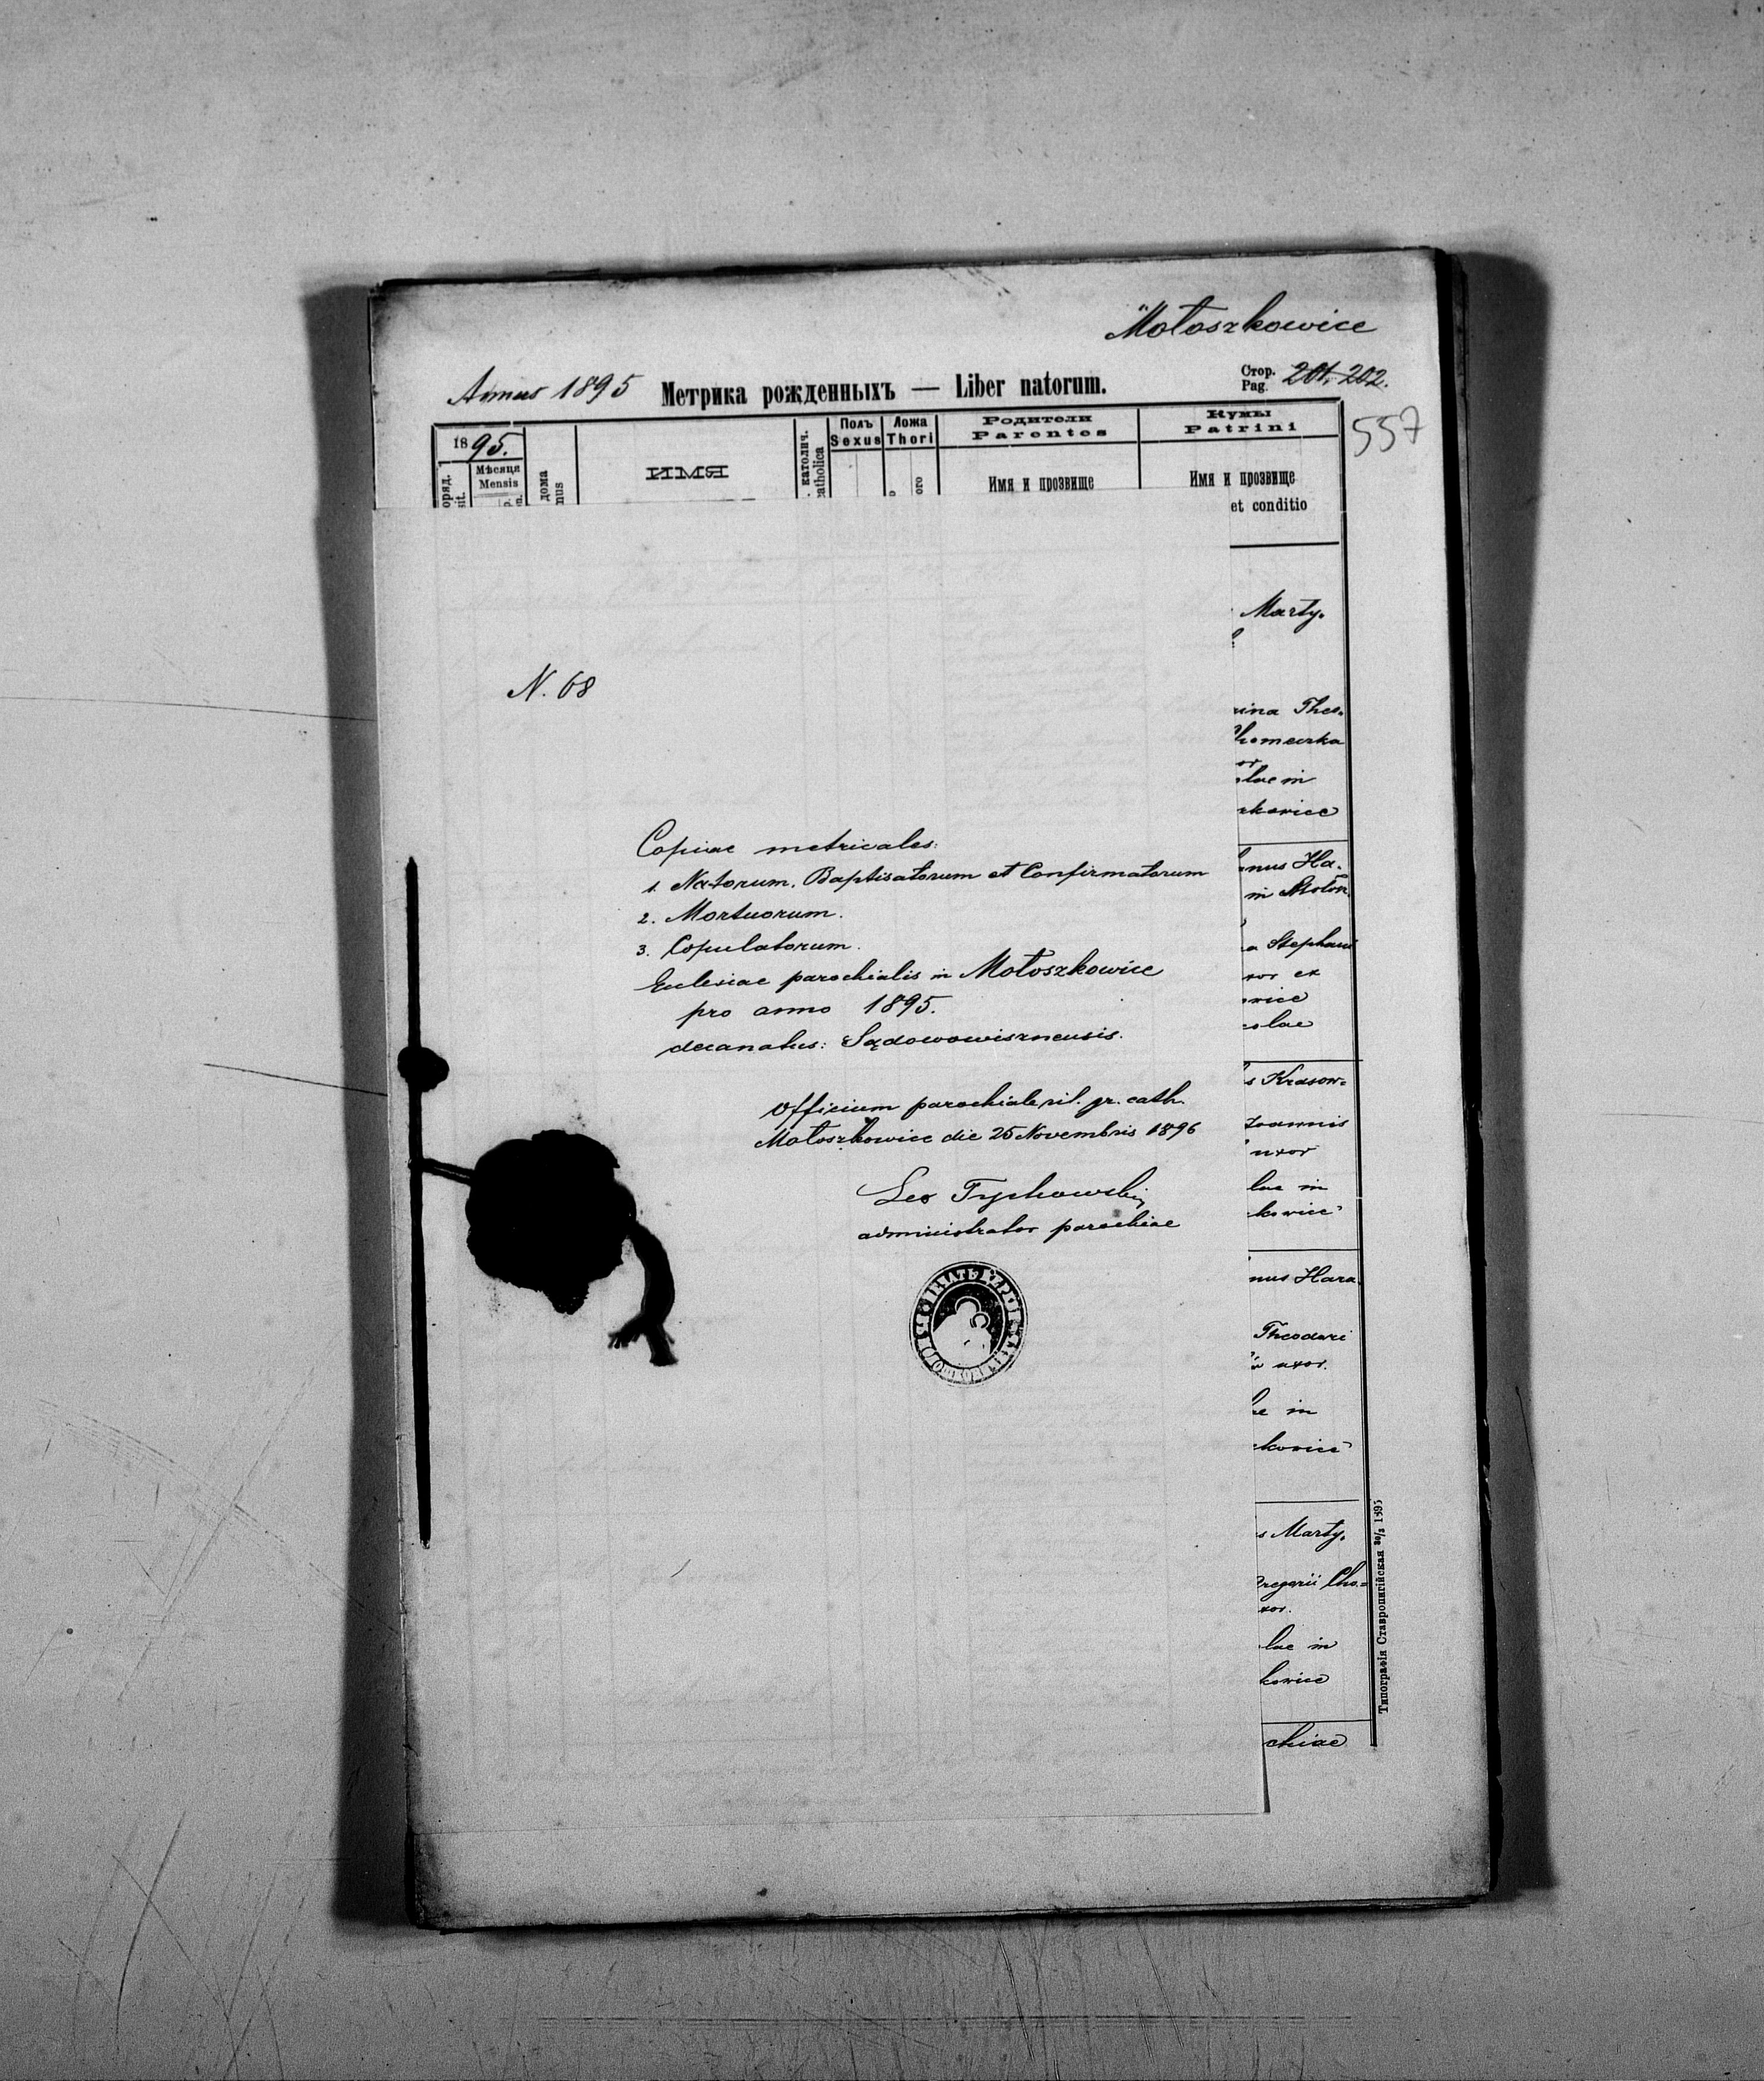 Mołoszkowice
Annus 1895 Метрика рожденныхъ — Liber natorum. Стор. Pag. 201. 202.
557
1895.
Мѣсяця
Mensis
ИМЯ
Полъ
Sexus
Ложа
Thori
Родители
Parentes
Имя и прозвище
Кумы
Patrini
Имя и прозвище
et conditio
N. 68
Copiae metricales:
1. Natorum, Baptisatorum et Confirmatorum
2. Mortuorum.
3. Copulatorum.
Eclesiae parochialis in Mołoszkowice
pro anno 1895.
decanatus: Sądowowiszneusis.
Officium parochiale rit. gr. cath.
Mołoszkowice die 25 Novembris 1896
Leo Tychowski
administrator parochiae
Marty-
rina Theo-
lae in
kowice
nus Ha-
in Mołos
a Stephani
xor ex
owice
colae
s Krasow-
Joannis
uxor
lae in
kowice
nus Hara
Theodori
uxor.
ae in
kowice
s Marty-
Gregorii Cho-
xor.
lae in
kowice
chiae
Типографія Ставропигійская 30/3 1895